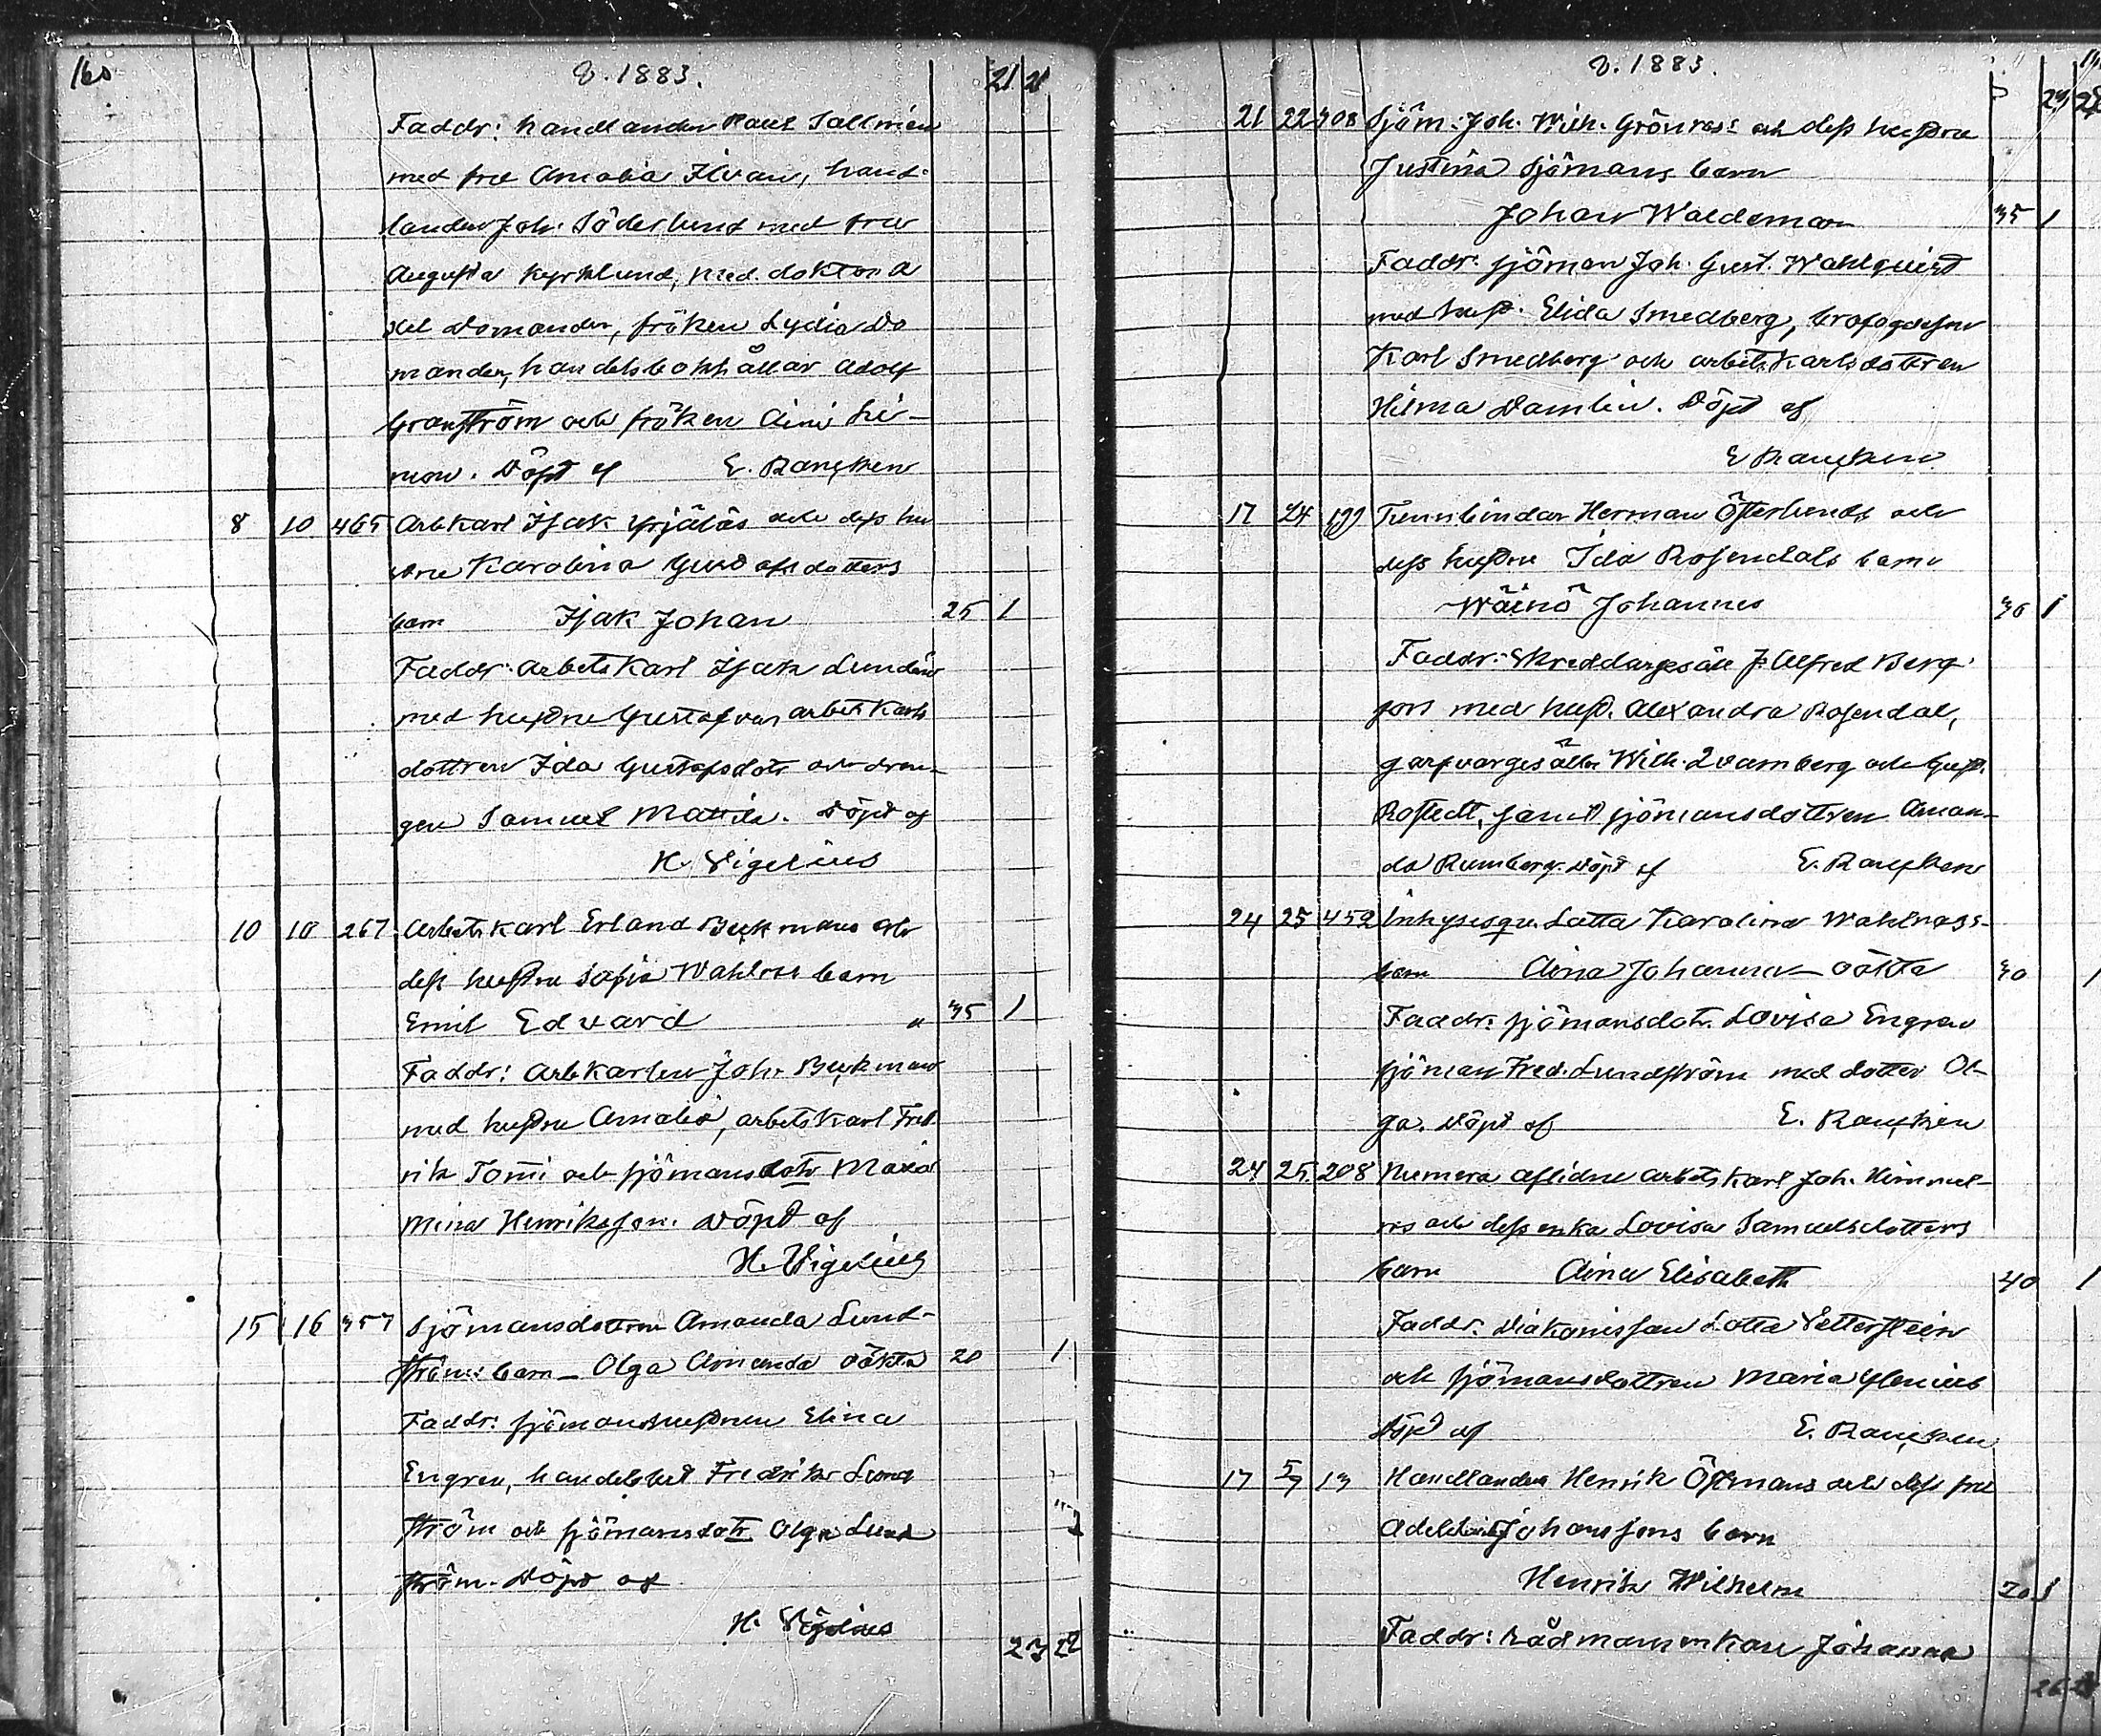 160
1883.
21 21
Faddr: handlanden Paul Sallmén
med fru Amalia Ilvan, hand-
landen Joh. Söderlund med fru
Augusta Kyrklund, med. doktor A
xel Domander, fröken Lydia Do
mander, handelsbokhållar Adolf
Granström och fröken Aini
Döpt af E. Rancken
8 10 465 Arbkarl Isak och dess hu
stru Karolina Gustafsdotters
barn Isak Johan 25 1
Faddr: arbetskarl Isak Lundén
med hustru Gustafva, arbetskarls
dottren Ida Gustafsdotr och dren-
gen Samuel Matts. Döpt af
K. Vigelius
10 10 267 Arbetskarl Erland Beckmans och
dess hustru Sofia Wahlroos barn
Emil Edvard 35 1
Faddr: arbkarlen Joh. Beckman
med hustru Amalia, arbetskarl Fred
rik Tomi och sjömansdotr Maria
Mina Henriksson. Döpt af
H. Vigelius
15 16 357 Sjömansdottren Amanda Lund-
ströms barn – Olga Amanda oäkta 20 1
Faddr: sjömanshustrun Elina
Engren, Fredrik Lund
ström och sjömansdotr Olga Lund
ström. Döpt af
H. Vigelius
23 22
1883.
21 22 408 Sjöm. Joh. Wilh. Grönroos och dess hustru
Justina Sjömans barn
Johan Waldemar 35 1
Faddr: sjöman Joh. Gust. Wahlquist
med hust. Elida Smedberg,
Karl Smedberg och arbetskarlsdottren
Hilma Damlin. Döpt af
E Rancken
17 24 Tunnbindar Herman Österlunds och
dess hustru Ida Rosendals barn
Wäinö Johannes 30 1
Faddr: Skreddargesäll J. Alfred Berg-
fors med hust. Alexandra Rosendal,
garfvargesälle Wilh. Qvarnberg och Gust.
Rostedt, samt sjömansdottren Aman-
da Rumberg. Döpt af E. Rancken
24 25 452 Inhysesqv. Lotta Karolina Wahlroos
barn Aina Johanna – oäkta 30 1
Faddr: sjömansdotr. Lovisa Engren
sjöman Fred. Lundström med dotter Ol-
ga. Döpt af E. Rancken
24 25 208 Numera aflidne arbetskarl Joh. Himmel-
ros och dess enka Lovisa Samuelsdotters
barn Aina Elisabeth 40 1
Faddr: Diakonissan Lotta Zetterstein
och sjömansdottren Maria Glenius
Döpt af E. Rancken
17 13 Handlanden Henrik Östmans och dess fru
Adelaide Johanssons barn
Henrik Wilhelm 20 1
Faddr: Rådmansenkan Johanna